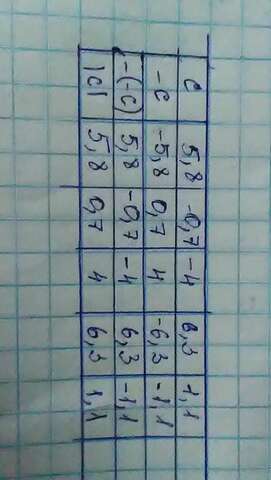 c 5,8 -0,7 -4 6,3 1,1
-c -5,8 0,7 4 -6,3 -1,1
-(-c) 5,8 -0,7 -4 6,3 -1,1
|c| 5,8 0,7 4 6,3 1,1